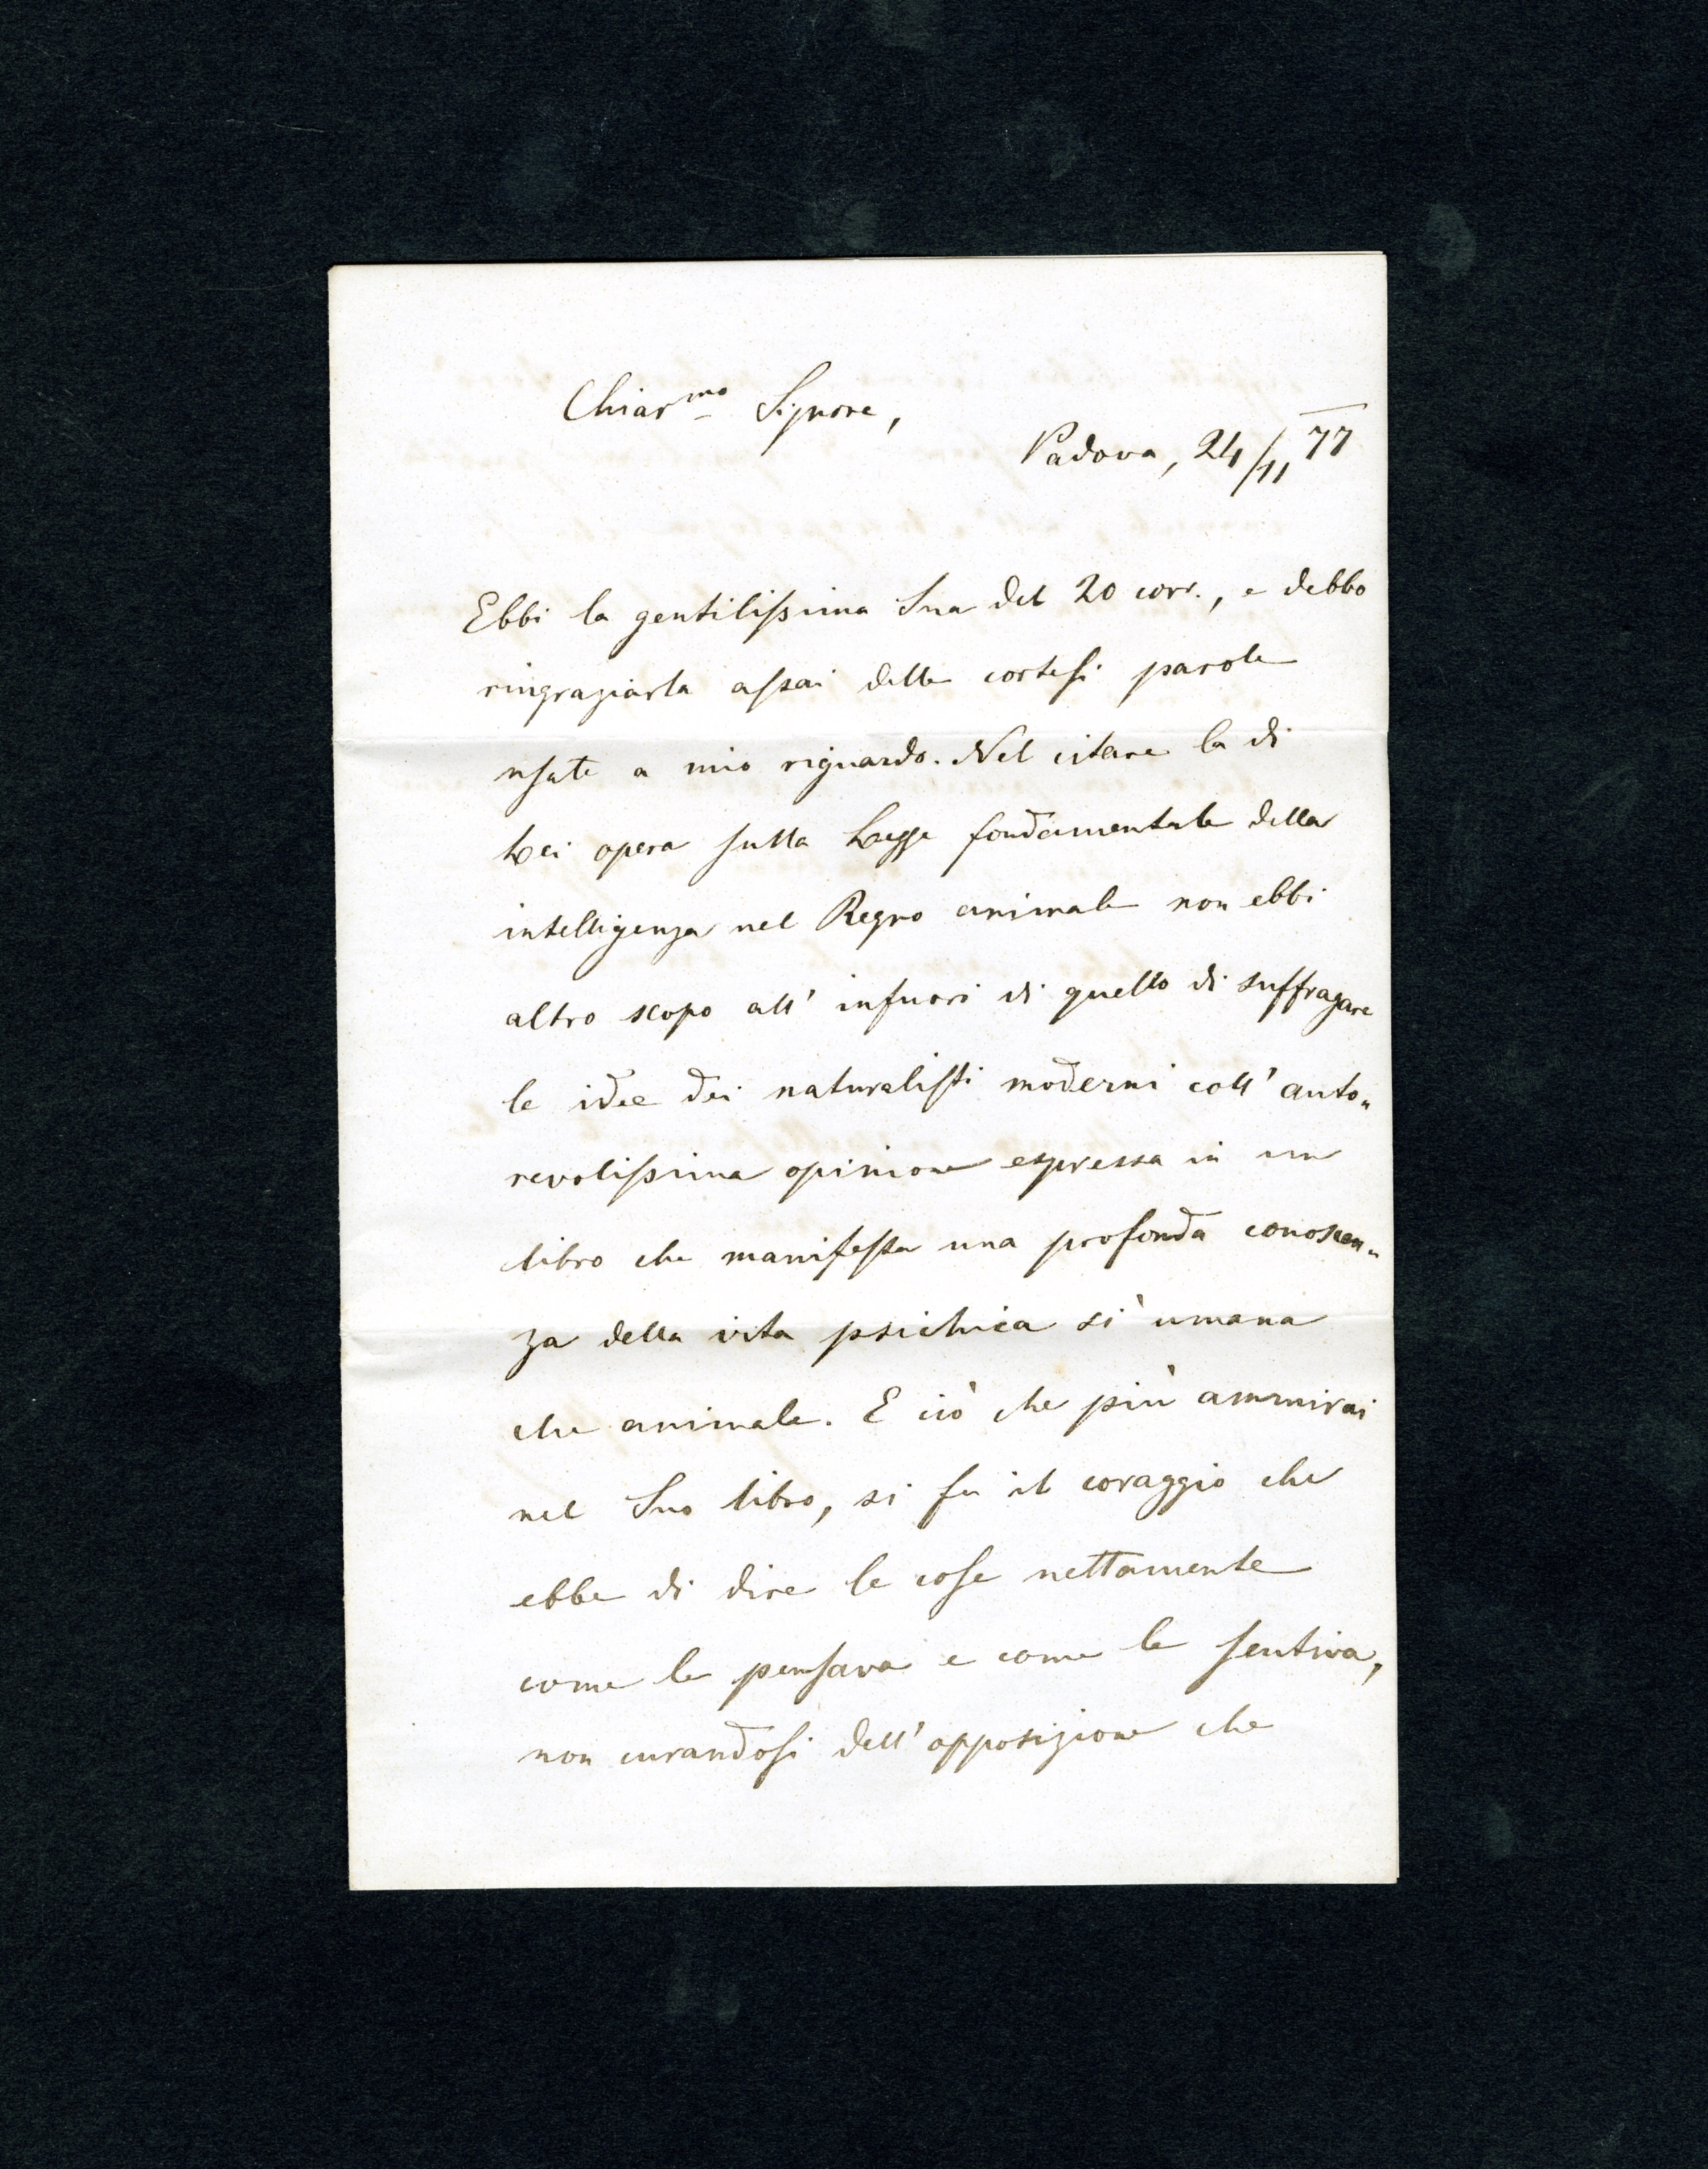 Chiar.mo Signore,
Padova, 24/11 77
Ebbi la gentilissima Sua del 20 corr., e debbo
ringraziarla assai delle cortesi parole
usate a mio riguardo. Nel citare la di
Lei opera sulla Legge fondamentale della
intelligenza nel Regno animale non ebbi
altro scopo all' infuori di quello di suffragare
le idee dei naturalisti moderni coll' auto„
revolissima opinione espressa in un
libro che manifesta una profonda conoscen„
za della vita psichica sì umana
che animale. E ciò che più ammirai
nel Suo libro, si fu il coraggio che
ebbe di dire le cose nettamente
come le pensava e come le sentiva,
non curandosi dell' opposizione che